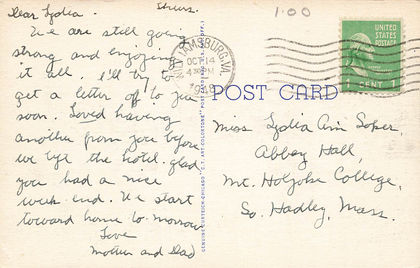 Dear Lydia, Thurs.
We are still going
strong and enjoying
it all. I'll try to
get a letter off to you
soon. Loved having
another from you before
we left the hotel. glad
you had a nice
week end. We start
toward home to-morrow
Love
Mother and Dad
GENUINE CURTEICH-CHICAGO "C.T. ART-COLORTONE" POST
WILLIAMSBURG, VA.
OCT 14
4 PM
POST CARD
1.00
UNITED
STATES
POSTAGE
1 CENT 1
Miss Lydia Ann Soper,
Abbey Hall,
Mt. Holyoke College,
So. Hadley, Mass.